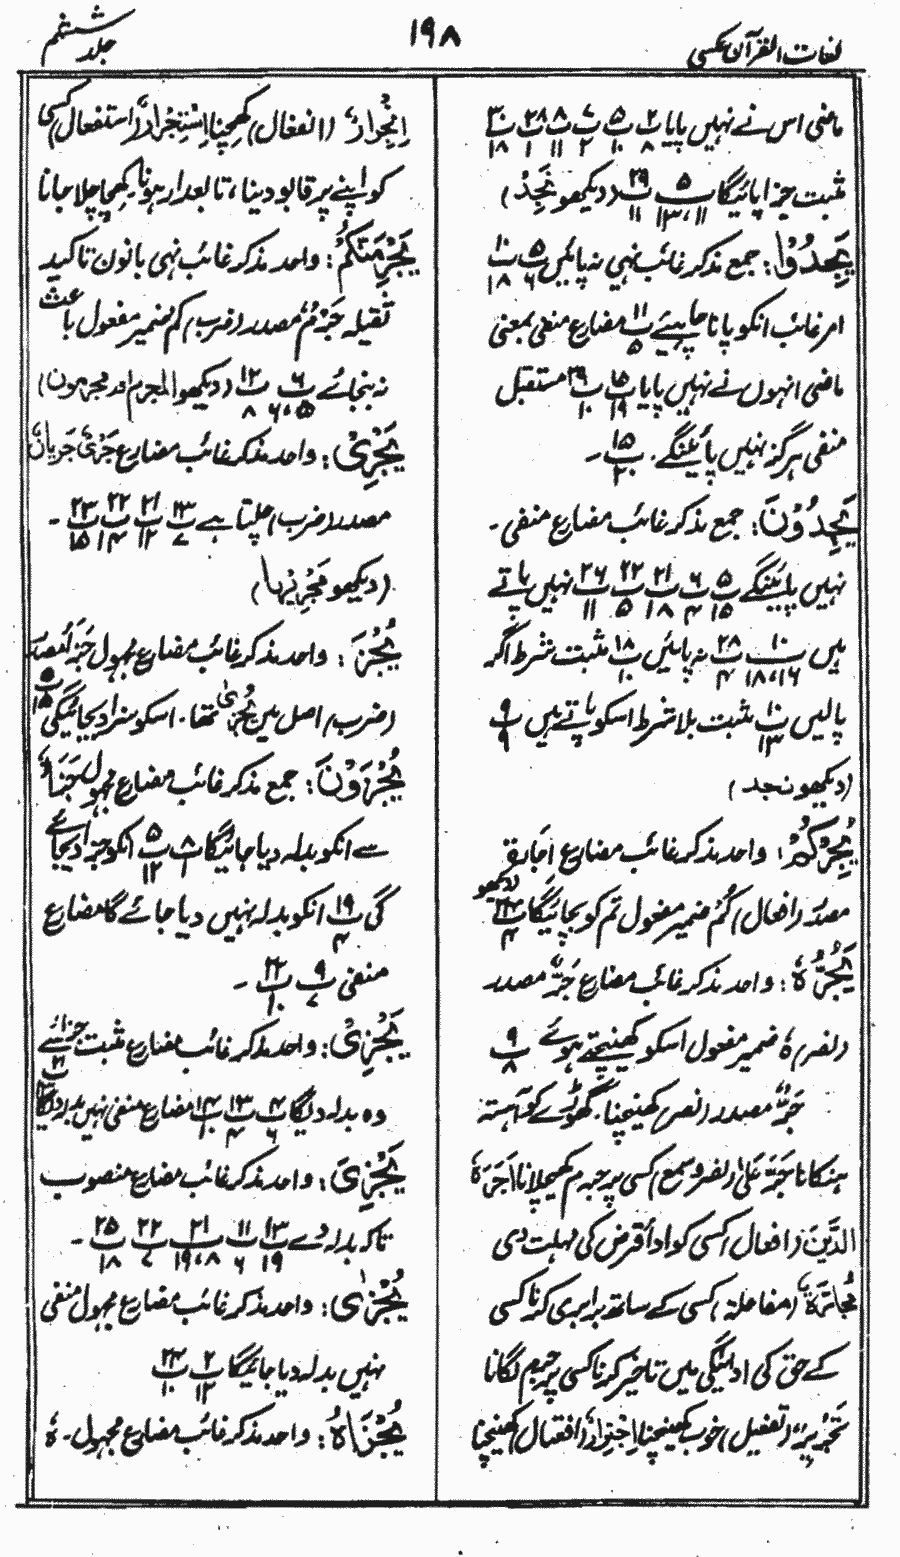 لغات القرآن عکسی
۱۹۸
جلد ششم
ماضی اس نے نہیں پایا پ۲ ۸ پ۵ ۱۰ پ۷ ۲ پ۸ ۱۱ پ۲۸ ۱ پ۳۰ ۱۸
مثبت جزا پائیگا پ۵ ۱۱، ۱۳ پ۲۹ ۱۱ (دیکھو نَجِدُ)
یَجِدُوْا: جمع مذکر غائب نہی نہ پائیں پ۵ ۶ پ۱۰ ۱۸
امر غائب انکو پانا چاہیئے پ۱۱ ۵ مضارع منفی بمعنی
ماضی انہوں نے نہیں پایا پ۱۵ ۱۹ پ۲۹ ۱۰ مستقبل
منفی ہرگز نہیں پائینگے پ۱۵ ۲۰ ۔
یَجِدُوْنَ: جمع مذکر غائب مضارع منفی ۔
نہیں پائینگے پ۵ ۱۵ پ۶ ۴ پ۲۱ ۱۸ پ۲۲ ۵ پ۲۶ ۱۱ نہیں پاتے
ہیں پ۱۰ ۱۶، ۱۸ پ۲۸ ۴ نہ پائیں پ۱۸ ۱۰ مثبت شرط اگر
پالیں پ۱۰ ۱۳ مثبت بلا شرط اسکو پاتے ہیں پ۹ ۹
(دیکھو نجد)
یُجِرْکُمْ: واحد مذکر غائب مضارع اِجَارۃ
مصدر (افعال) کُمْ ضمیر مفعول تم کو بچائیگا پ۲۶ ۴ (دیکھو
یَجُرُّہٗ: واحد مذکر غائب مضارع جَرٌّ مصدر
(نصر) ہٗ ضمیر مفعول اسکو کھینچتے ہوئے پ۹ ۸
جَرٌّ مصدر (نصر) کھینچنا۔ گھوڑے کو آہستہ
ہنکانا جَرَّ عَلٰی (نصر و سمع) کسی پر جرم پھیلانا اَجَرَہٗ
الدَّیْنَ (افعال) کسی کو ادا قرض کی مہلت دی
مُجَارَۃٌ (مفاعلۃ) کسی کے ساتھ برابری کرنا کسی
کے حق کی ادائیگی میں تاخیر کرنا کسی پر جرم لگانا
تَجْرِیْرٌ (تفعیل) خوب کھینچنا اِجْتِرَارٌ (افتعال) کھینچنا
اِنْجِرَارٌ (انفعال) کھچنا اِسْتِجْرَارٌ (استفعال) کسی
کو اپنے پر قابو دینا، تابعدار ہونا کھچا چلا جانا
یَجْرِمَنَّکُمْ: واحد مذکر غائب نہی بانون تاکید
ثقیلہ جَرْمٌ مصدر (ضرب) کم ضمیر مفعول باعث
نہ بنجائے پ۶ ۵، ۶ پ۱۲ ۸ (دیکھو المجرم اور مجرمون)
یَجْرِیْ: واحد مذکر غائب مضارع جَرْیٌ جَرَیَانٌ
مصدر (ضرب) چلتا ہے پ۱۳ ۷ پ۲۱ ۱۲ پ۲۲ ۱۴ پ۲۳ ۱۵ ۔
(دیکھو مَجْرِیْہَا)
یُجْزَ: واحد مذکر غائب مضارع مجہول جَزَاءٌ مصدر
(ضرب) اصل میں یُجْزٰی تھا ۔ اسکو سزا دیجائیگی پ۵ ۱۵
یُجْزَوْنَ: جمع مذکر غائب مضارع مجہول جَزَاءٌ
سے انکو بدلہ دیا جائیگا پ۸ ۱ پ۵ ۱۲ انکو جزا دیجائے
گی پ۱۹ ۴ انکو بدلہ نہیں دیا جائے گا مضارع
منفی پ۹ ۷ پ۲۲ ۱۰ ۔
یَجْزِیْ: واحد مذکر غائب مضارع مثبت جزائے
وہ بدلہ دیگا پ۴ ۶ پ۱۳ ۴ پ۱۴ ۱۰ مضارع منفی نہیں بدلہ دیگا پ۲۱ ۱۳
یَجْزِیَ: واحد مذکر غائب مضارع منصوب
تاکہ بدلہ دے پ۱۳ ۱۹ پ۱۱ ۶ پ۲۱ ۸، ۱۹ پ۲۲ ۷ پ۲۵ ۱۸ ۔
یُجْزٰی: واحد مذکر غائب مضارع مجہول منفی
نہیں بدلہ دیا جائیگا پ۲ ۱۲ پ۲۴ ۱۰
یُجْزَاہُ: واحد مذکر غائب مضارع مجہول ۔ ہٗ